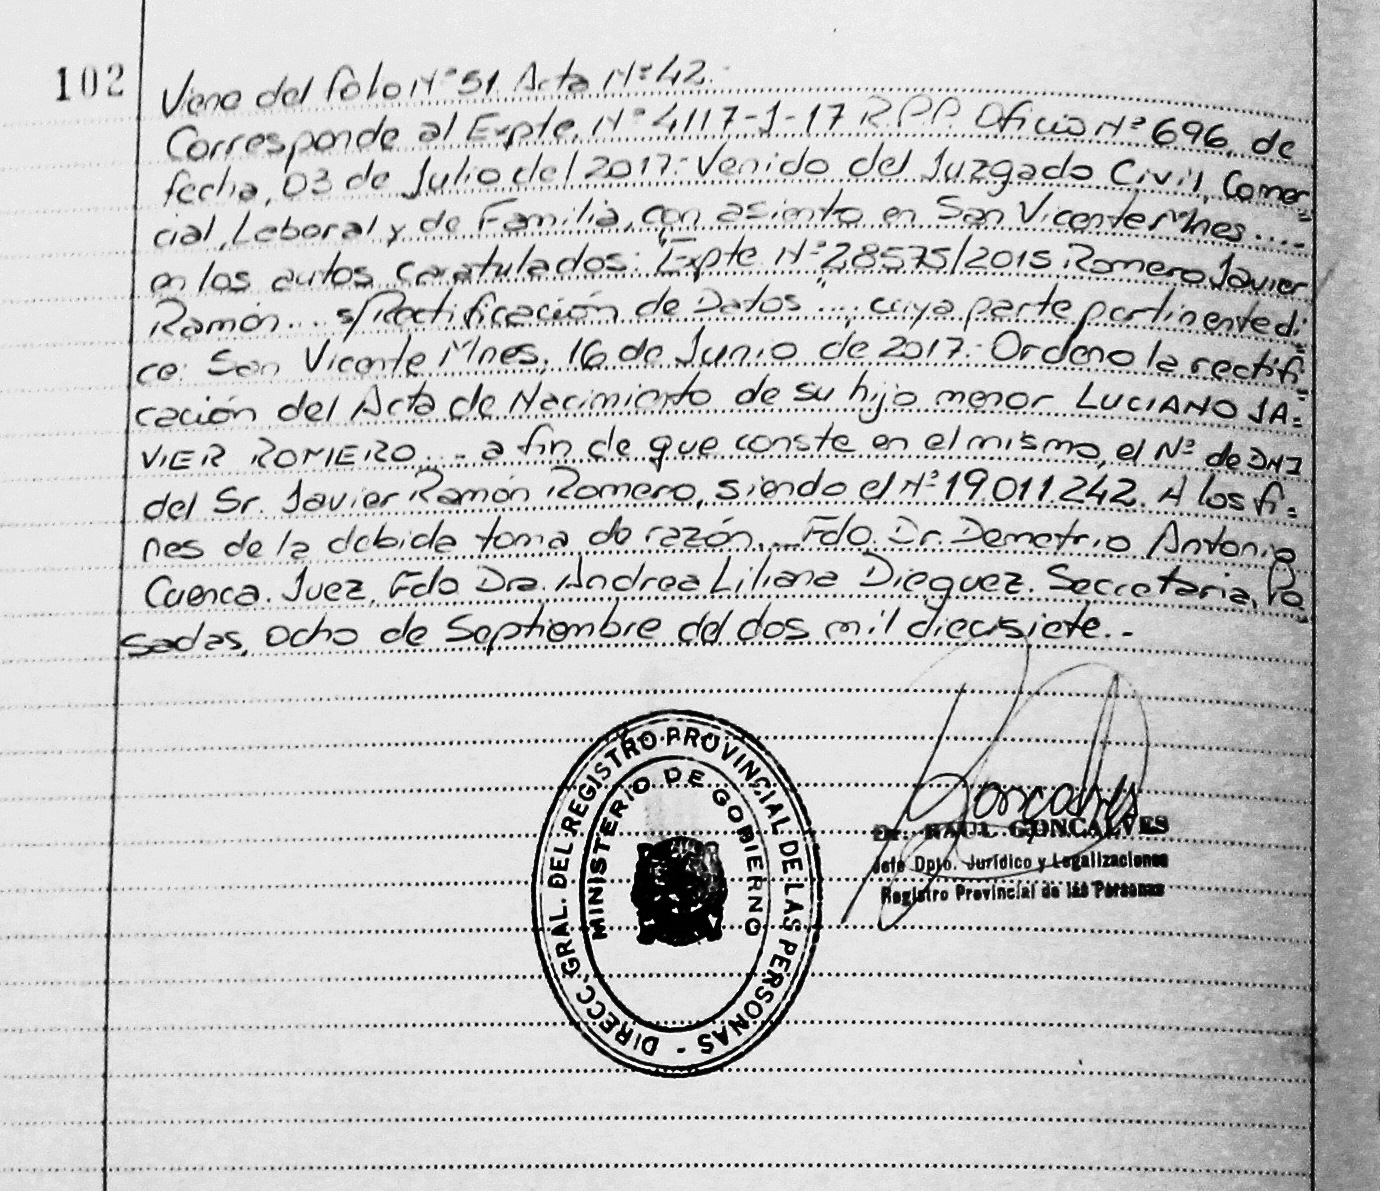 102
Viene del Folio N° 51 Acta N° 42.-
Corresponde al Expte. N° 4117-J-17 R.P.P. Oficio N° 696, de
fecha, 03 de Julio del 2017.- Venido del Juzgado Civil, Comer=
cial, Laboral y de Familia, con asiento en San Vicente Mnes....-
en los autos caratulados: "Expte N° 28575/2015 Romero Javier
Ramón... s/Rectificación de Datos"..., cuya parte pertinente di=
ce: San Vicente Mnes, 16 de Junio de 2017.- Ordeno la rectifi=
cación del Acta de Nacimiento de su hijo menor LUCIANO JA=
VIER ROMERO... a fin de que conste en el mismo, el N° de DNI
del Sr. Javier Ramón Romero, siendo el N° 19.011.242. A los fi=
nes de la debida toma de razón... Fdo. Dr. Demetrio Antonio
Cuenca. Juez, Fdo Dra. Andrea Liliana Dieguez. Secretaria, Po
sadas, ocho de Septiembre del dos mil diecisiete..-
DIRECC. GRAL. DEL REGISTRO PROVINCIAL DE LAS PERSONAS -
MINISTERIO DE GOBIERNO
Goncalves
Dr. RAUL GONCALVES
Jefe Dpto. Jurídico y Legalizaciones
Registro Provincial de las Personas